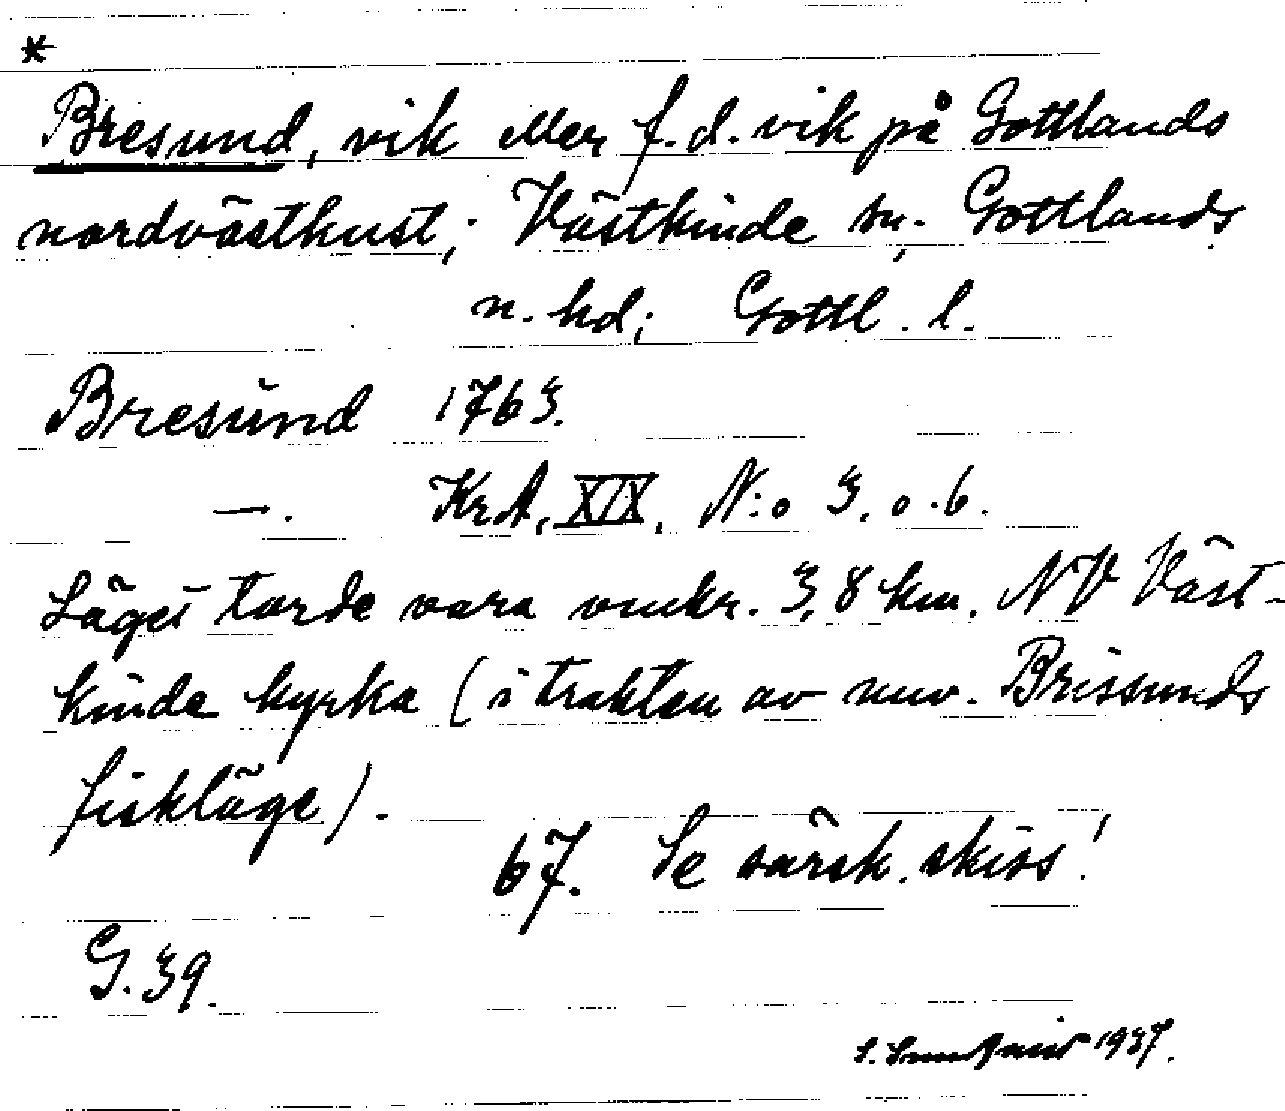 *
Bresund, vik eller f.d. vik på Gottlands
nordvästkust; Västkinde sn. Gottlands
n. hd; Gottl. l.
Bresund 1763.
—. KrA, XIX, N:o 3, o.6.
Läget torde vara omkr. 3,8 km. NV Väst-
kinde kyrka (i trakten av nuv. Brissunds
fiskläge).
67. Se särsk. skiss!
G.39.
1937.